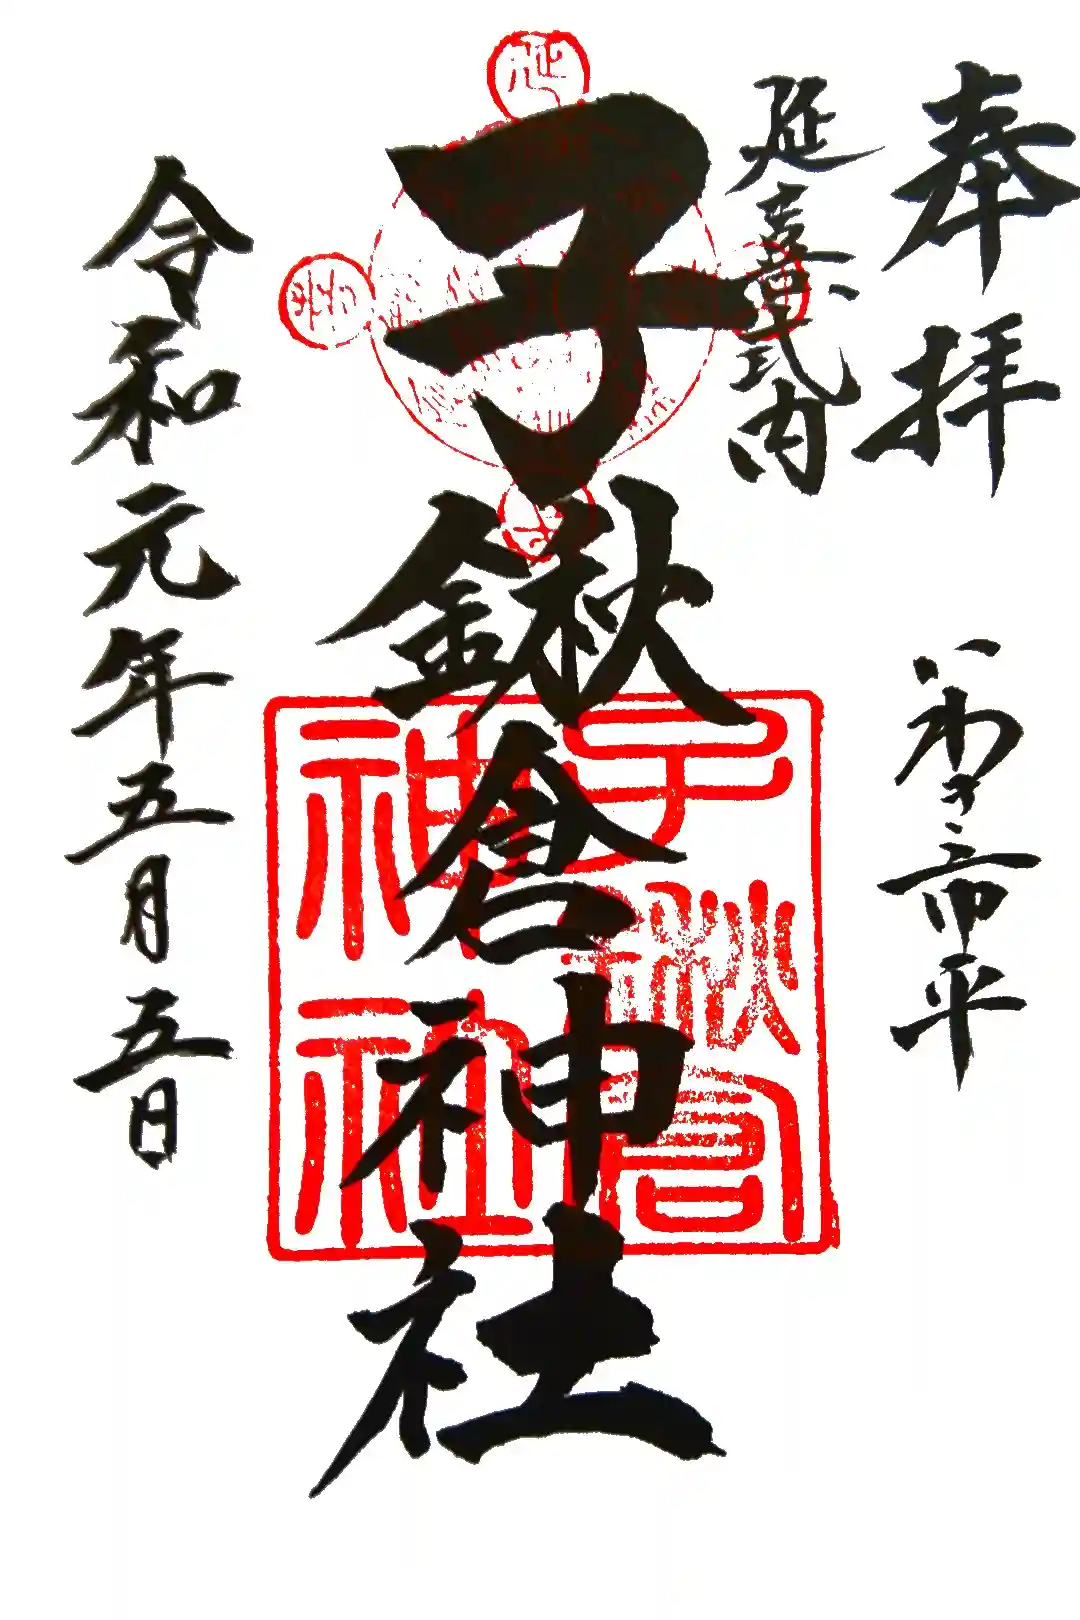 奉拝
いわき市平
延喜式内
子鍬倉神社
令和元年五月五日
子鍬倉
神社